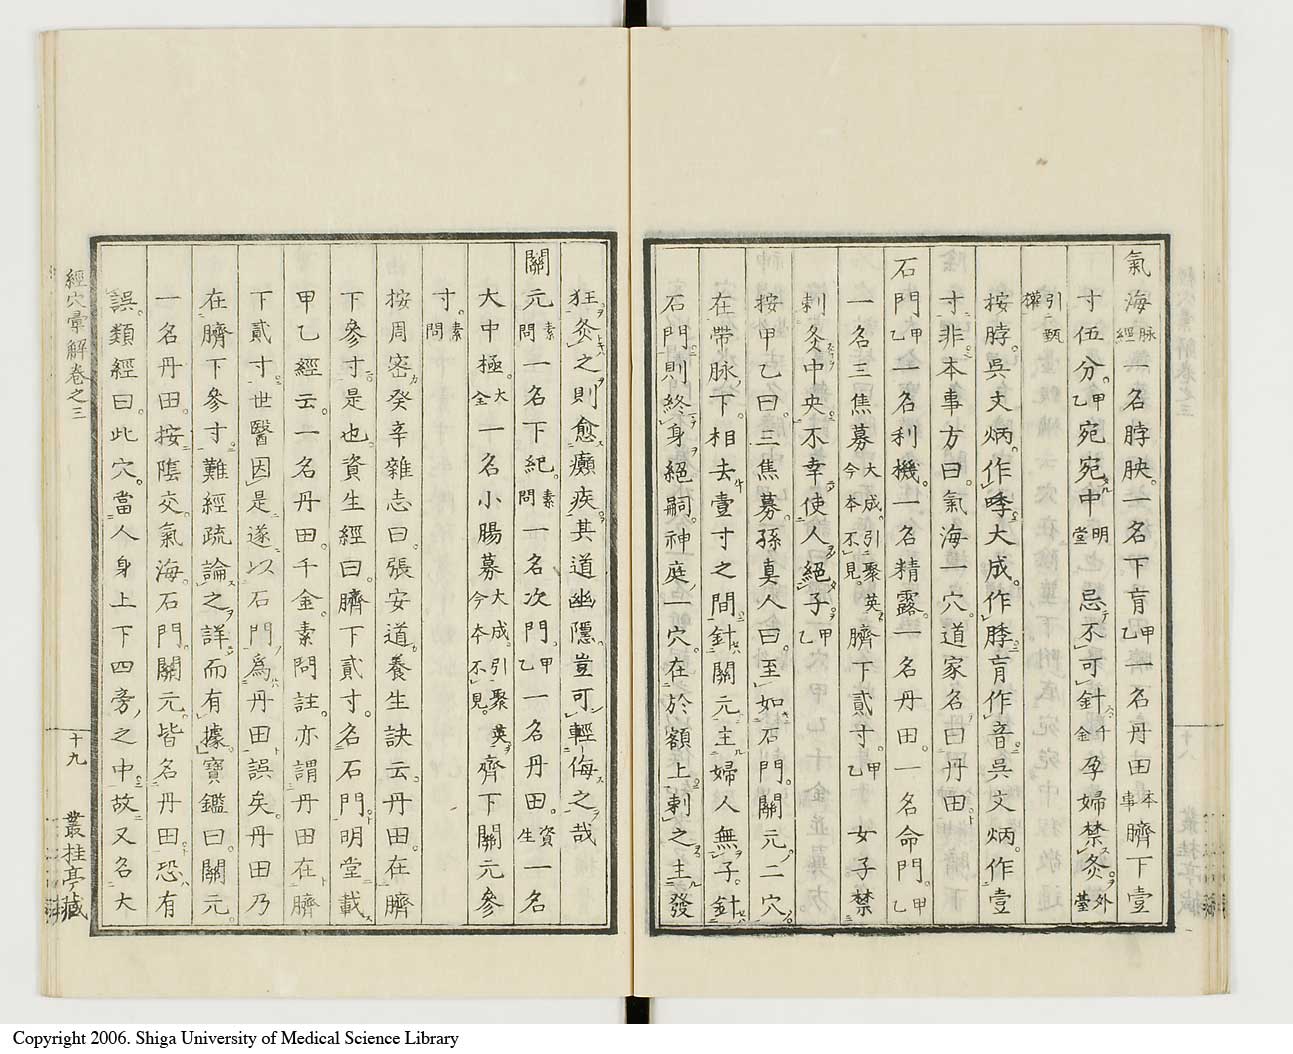 氣海脉經一名脖胦一名下肓甲乙一名丹田本事臍下壹
寸伍分甲乙宛宛中明堂也忌不可針千金孕婦禁灸外臺
引甄權
按脖吳文炳作㖢大成作脖肓作音吳文炳作壹
寸非本事方曰氣海一穴道家名曰丹田
石門甲乙一名利機一名精露一名丹田一名命門甲乙
一名三焦募大成引聚英今本不見臍下貳寸甲乙女子禁
刺灸中央不幸使人絕子甲乙
按甲乙曰三焦募孫真人曰至如石門關元二穴
在帶脉下相去壹寸之間針關元主婦人無子針
石門則終身絕嗣神庭一穴在於額上刺之主發
狂灸之則愈癲疾其道幽隱豈可輕侮之哉
關元素問一名下紀素問一名次門甲乙一名丹田資生一名
大中極大全一名小腸募大成引聚英今本不見齊下關元參
寸素問
按周密癸辛雜志曰張安道養生訣云丹田在臍
下參寸是也資生經曰臍下貳寸名石門明堂載
甲乙經云一名丹田千金素問註亦謂丹田在臍
下貳寸世醫因是遂以石門爲丹田誤矣丹田乃
在臍下參寸難經疏論之詳而有據寶鑑曰關元
一名丹田按陰交氣海石門關元皆名丹田恐有
誤類經曰此穴當人身上下四旁之中故又名大
經穴彙解卷之三
十九
叢桂亭藏
Copyright 2006. Shiga University of Medical Science Library